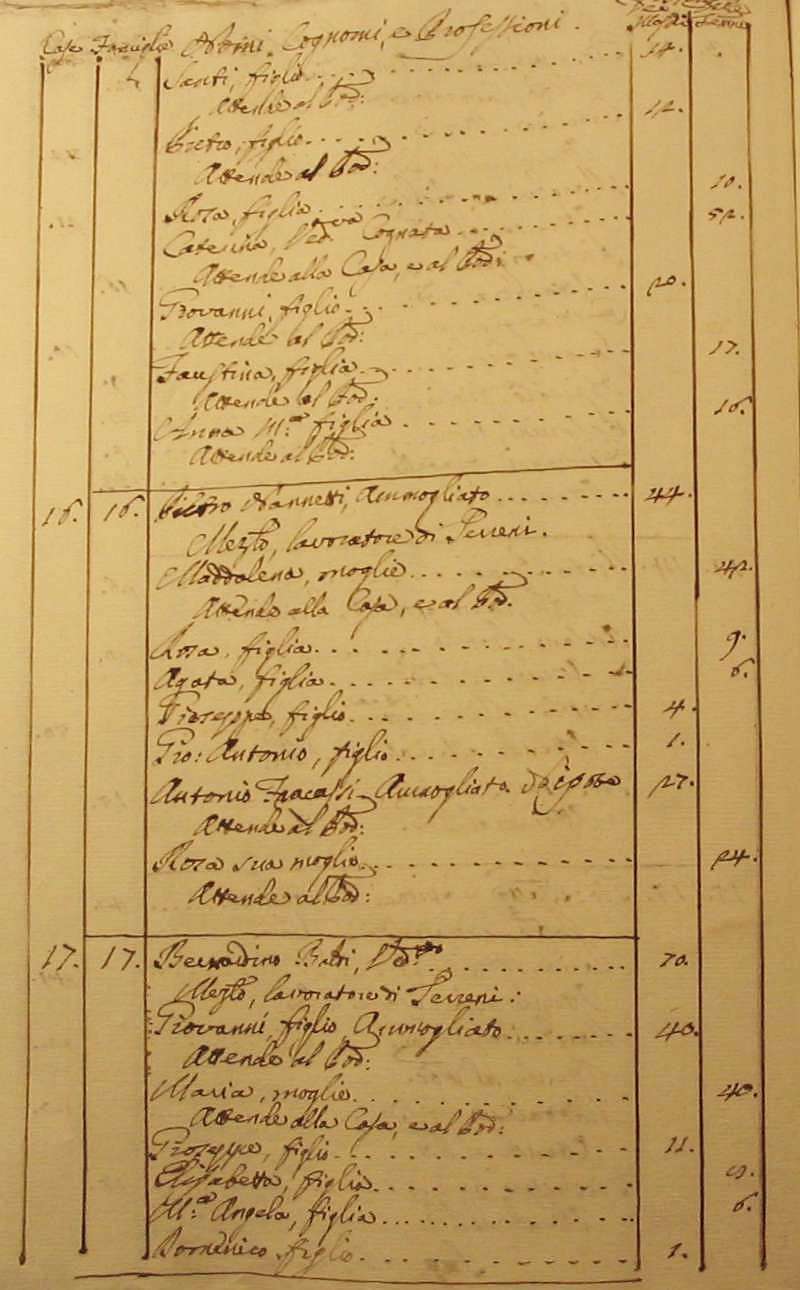 Case Famiglie Nomi, Cognomi, e Professioni. Maschi Femine
Santi, figlio 14.
Attende al Pod:
Pietro, figlio 12.
Attende al Pod:
Rosa, figlia 10.
Caterina, Ved.va Cognata 52.
Attende alla Casa, e al Pod:
Giovanni, figlio 20.
Attende al Pod:
Faustina, figlia 17.
Attende al Pod:
Anna M.a figlia 16.
Attende al Pod:
16. 16. Pietro Nannetti, Ammogliato 44.
Mez.o, lavoratore di Terreni.
Maddalena, moglie 42.
Attende alla Casa, e al Pod.
Rosa, figlia 9.
Agata, figlia 6.
Gioseppe, figlio 4.
Gio: Antonio, figlio 1.
Antonio Fracassi Ammogliato 27.
Attende al Pod:
Rosa sua moglie 24.
Attende al Pod:
17. 17. Bernardino Ved.vo 70.
Mez.o, lavoratore di Terreni:
Giovanni figlio Ammogliato 40.
Attende al Pod:
Maria, moglie 40.
Attende alla Casa, e al Pod:
Gioseppe, figlio 11.
Elisabetta, figlia 9.
M.a Angela, figlia 6.
Domenico figlio 1.